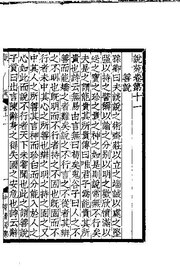 說苑卷第十一
善說
孫卿曰夫談說之術齊莊以立之端誠以處之堅
強以持之譬稱以諭之分別以明之歡忻憤滿以
送之寶之珍之貴之神之如是則說常無不行矣
夫是之謂能貴其所貴傳曰唯君子為能貴其所
貴也詩云無易由言無曰苟矣鬼谷子曰人之不
善而能矯之者難矣說之不行言之不從者其辯
之不明也既明而不行者持之不固也既固而不
行者未中其心之所善也辯之明之持之固之又
中其人之所善其言神而珍白而分能入於人之
心如此而說不行者天下未嘗聞也此之謂善說
子貢曰出言陳辭身之得失國之安危也詩云